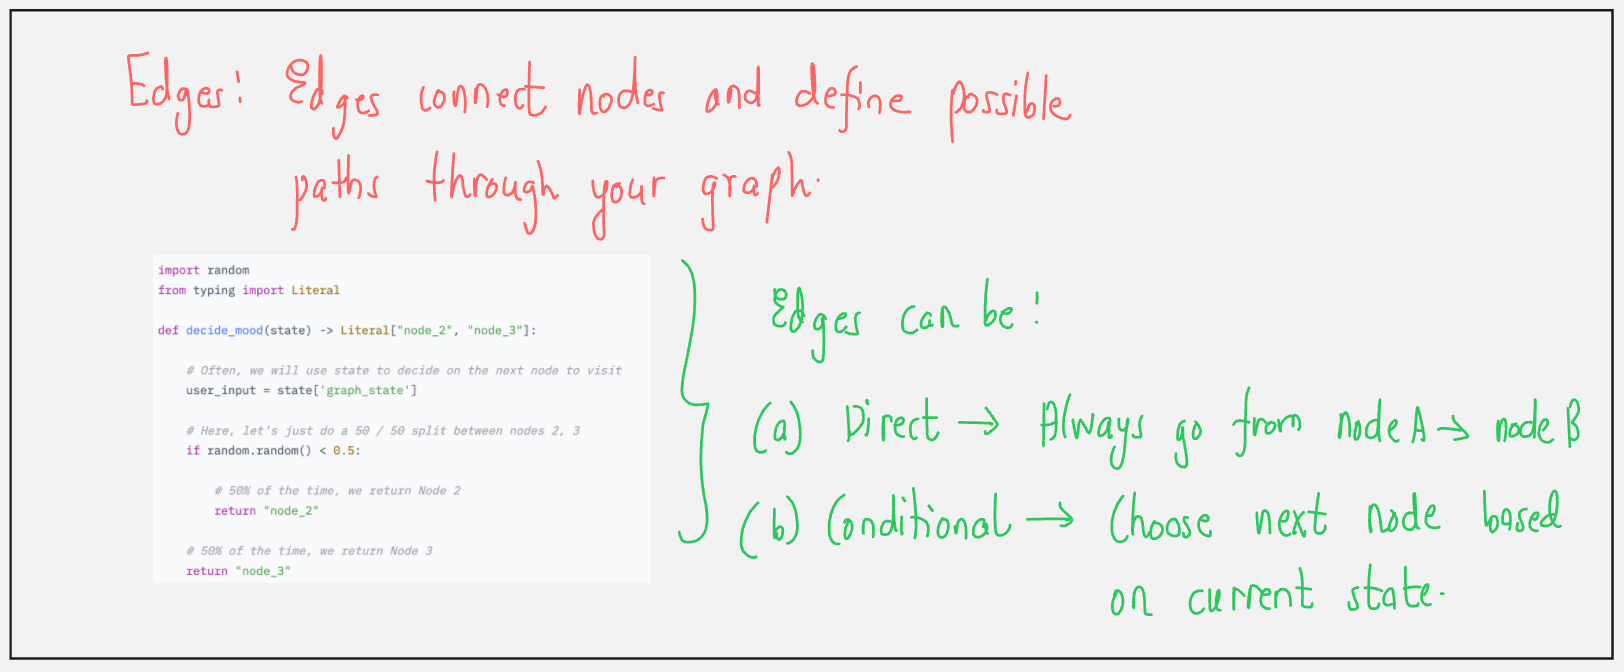 Edges: Edges connect nodes and define possible
paths through your graph.
import random
from typing import Literal
def decide_mood(state) -> Literal["node_2", "node_3"]:
# Often, we will use state to decide on the next node to visit
user_input = state['graph_state']
# Here, let's just do a 50 / 50 split between nodes 2, 3
if random.random() < 0.5:
# 50% of the time, we return Node 2
return "node_2"
# 50% of the time, we return Node 3
return "node_3"
Edges can be:
(a) Direct → Always go from node A → node B
(b) Conditional → Choose next node based
on current state.